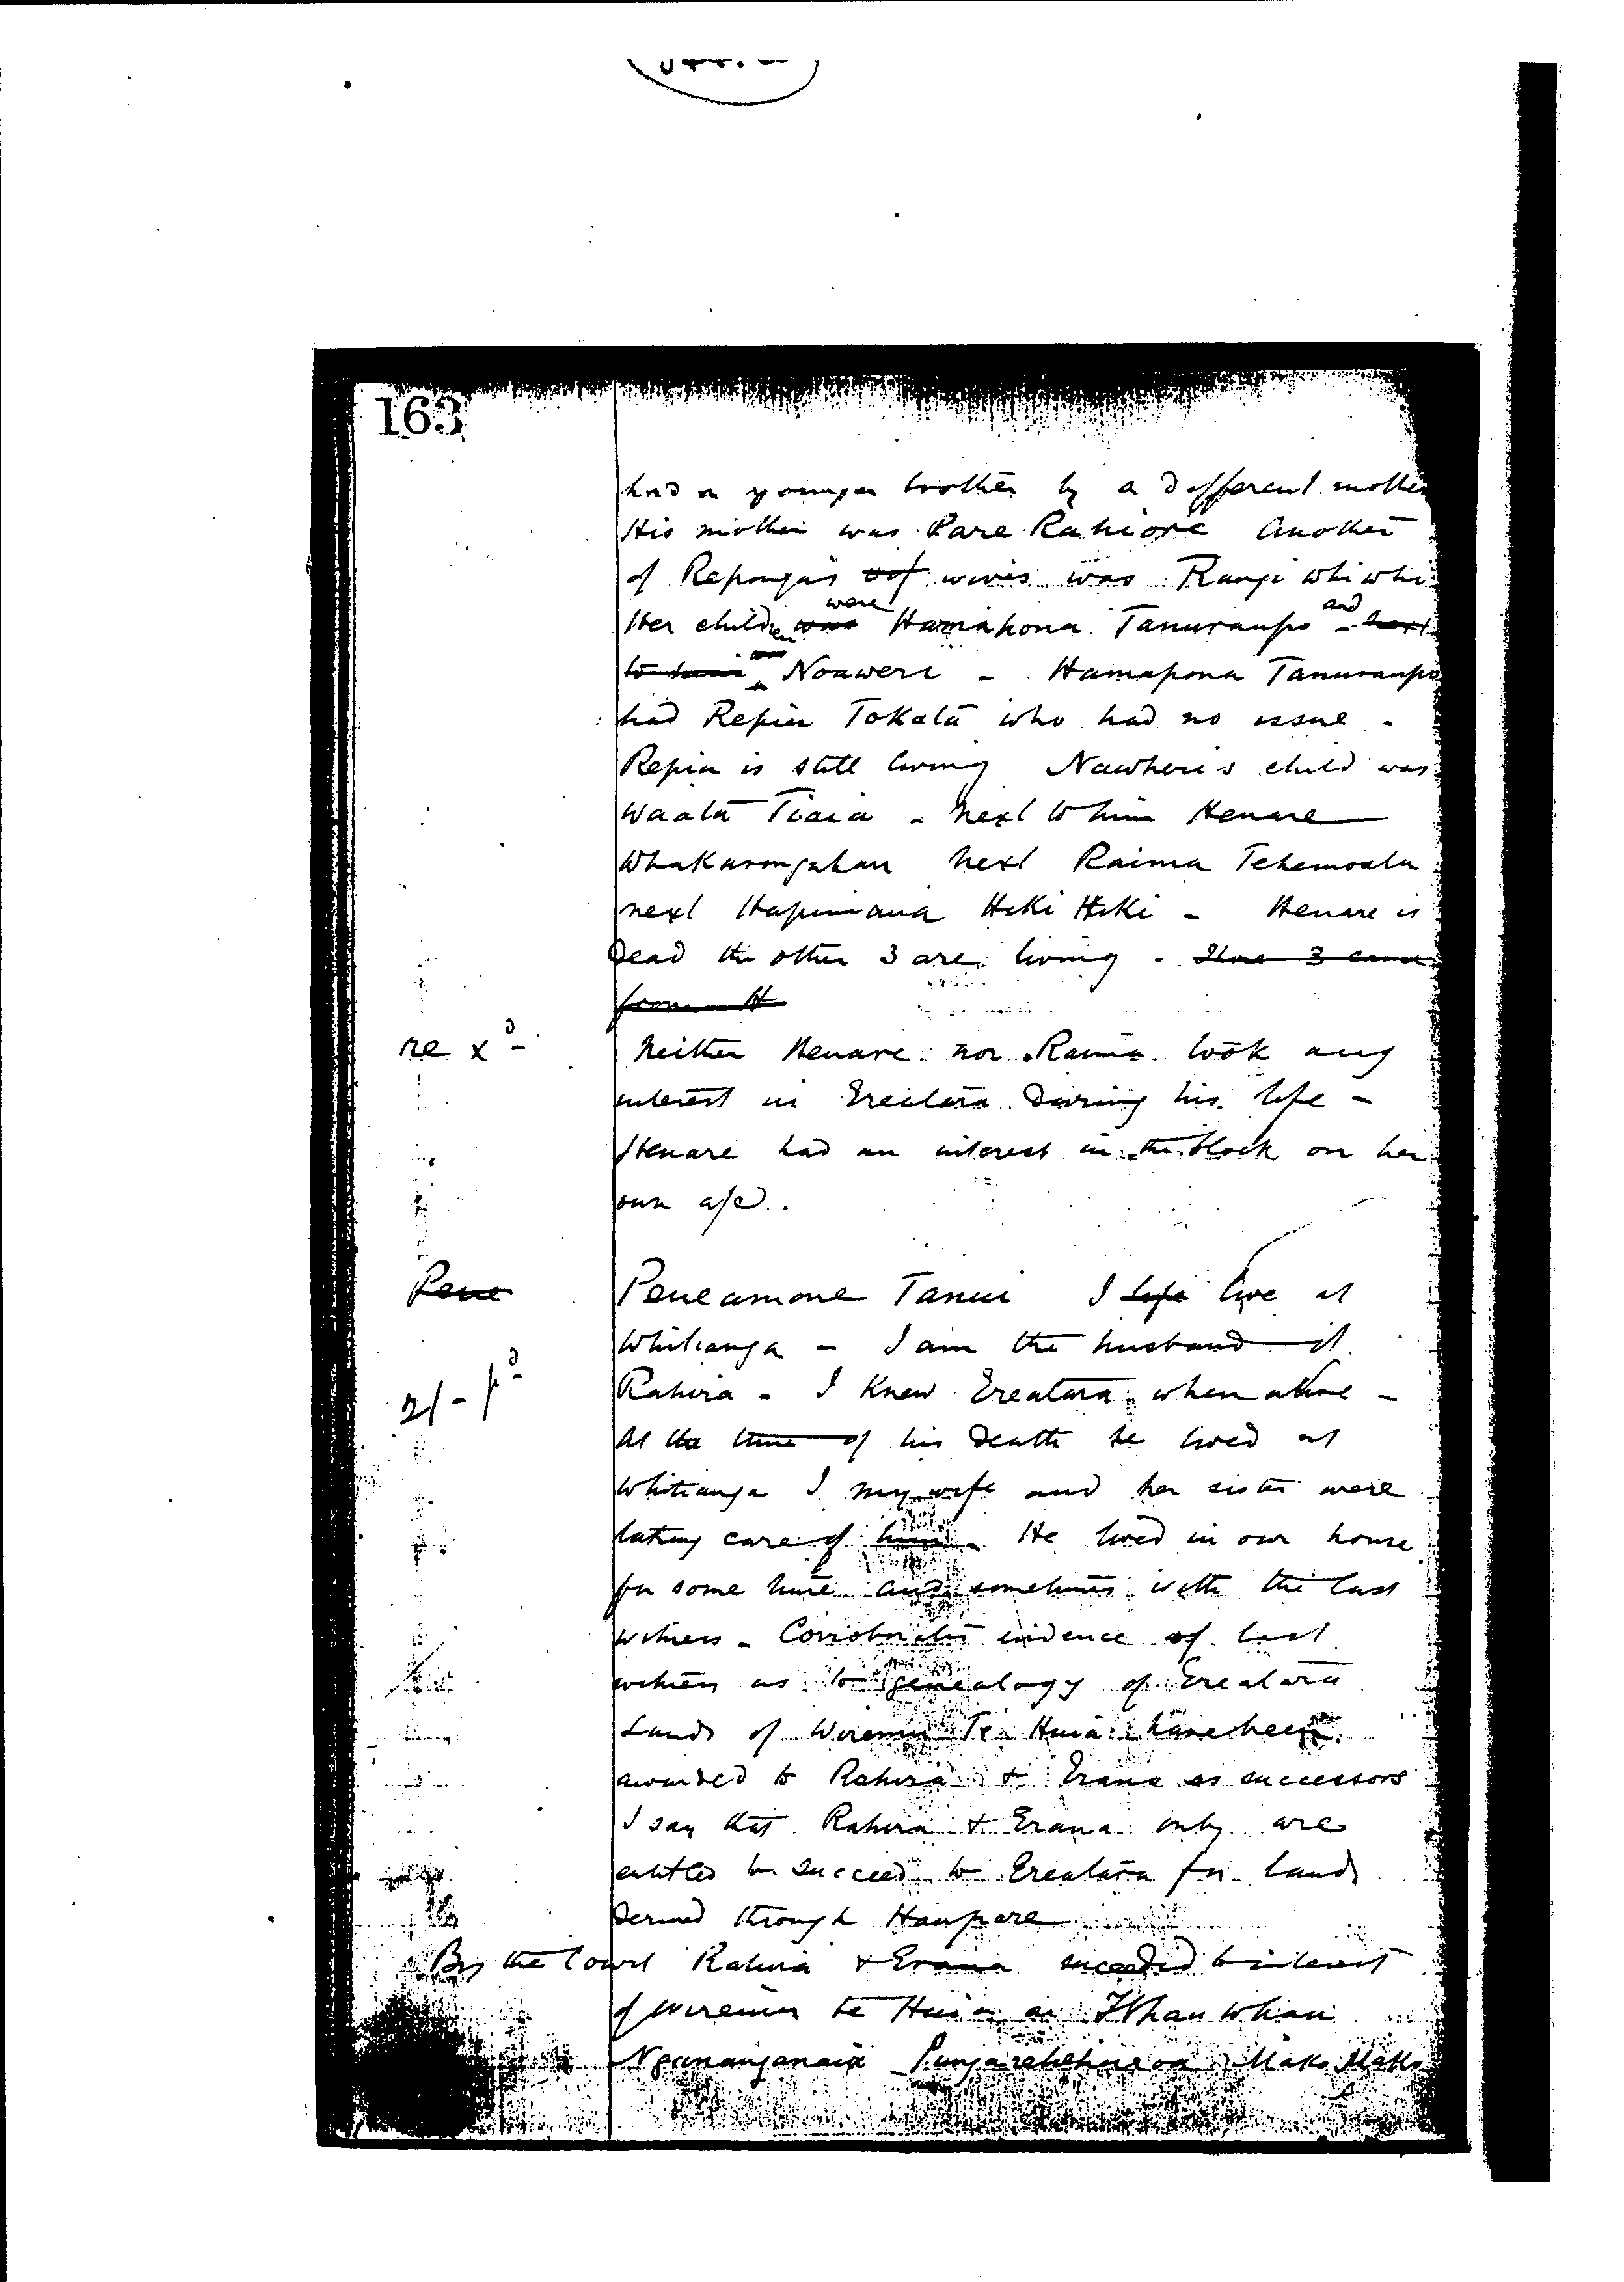 163
had a younger brother by a different mother
His mother was Pare Rahiore Another
of Repongas of wives was Rangi whiwhi
were and
Her children was Hamahona Tanuraupo - next
to him was Noaweri - Hamapona Tanuraupo
had Repia Tokata who had no issue -
Repia is still living Nawheri's child was
Waata Tiaia - next to him Henare
Whakarongahau next Raima Tehemoata
next Hapimana HikiHiki - Henare is
dead the other 3 are living - These 3 came
from H
re xd - Neither Henare nor Raima took any
interest in Ereatara during his life -
Henare had an interest in the block on her
own a/c.
Pene Peneamone Tanui I life live at
Whitianga - I am the husband of
Rahera - I knew Ereatara when alive -
At the time of his death he lived at
Whitianga I my wife and her sister were
taking care of him - He lived in our house
for some time and sometimes with the last
witness - Corroborates evidence of last
witness as to genealogy of Ereatara
Lands of Wiremu Te Huia have been
awarded to Rahera & Erana as successors
I say that Rahera & Erana only are
entitled to succeed to Ereatara for lands
derived through Haupare
By the Court Rahera & Erana succeeded to interest
of Wiremu te Huia in Whau whau
Mako Mako